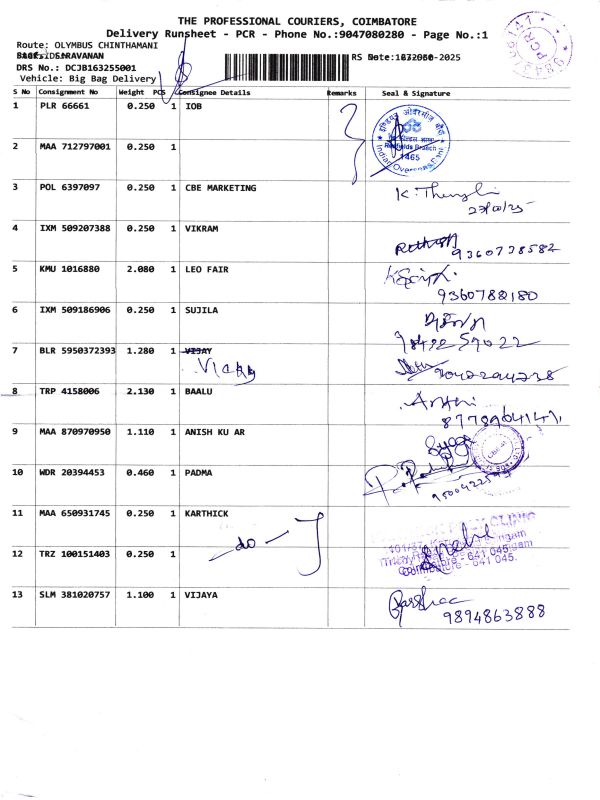 THE PROFESSIONAL COURIERS, COIMBATORE
Delivery Runsheet - PCR - Phone No.:9047080280 - Page No.:1
Route: OLYMBUS CHINTHAMANI
SARAVANAN
DRS No.: DCJB163255001
Vehicle: Big Bag Delivery
S No Consignment No Weight PCS Consignee Details Remarks Seal & Signature
1 PLR 66661 0.250 1 IOB
2 MAA 712797001 0.250 1
Indian Overseas Bank
1465
3 POL 6397097 0.250 1 CBE MARKETING
4 IXM 509207388 0.250 1 VIKRAM
9360738582
5 KMU 1016880 2.080 1 LEO FAIR
9360788180
6 IXM 509186906 0.250 1 SUJILA
98422 59022
7 BLR 5950372393 1.280 1 VIJAY
Vicky
8 TRP 4158006 2.130 1 BAALU
9 MAA 870970950 1.110 1 ANISH KU AR
10 WDR 20394453 0.460 1 PADMA
11 MAA 650931745 0.250 1 KARTHICK
do
CLINIC
12 TRZ 100151403 0.250 1
Coimbatore - 641 045.
13 SLM 381020757 1.100 1 VIJAYA
9894863888